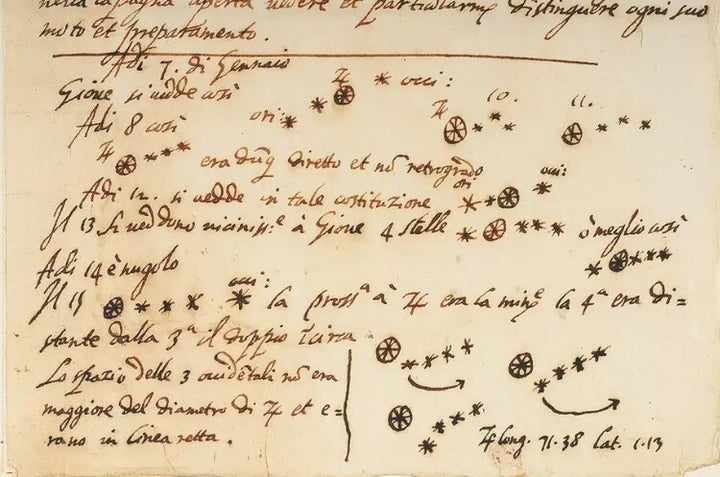 aperta uedere et particularm.ᵉ distinguere ogni suo
moto et preparamento.
Adi 7. di Gennaio
Gioue si uedde così ori: ♃ occi:
Adi 8 così ♃ 10. 11.
♃ era dūq diretto et nō retrogrado
Adi 12. si uedde in tale costituzione ori occi:
Il 13 si ueddono uiciniss:ᵉ à Gioue 4 stelle ò meglio così
Adi 14 è nugolo
Il 15 occi: la prossᵃ à ♃ era la minᵉ la 4ᵃ era di=
stante dalla 3ᵃ il doppio īcirca
Lo spazio delle 3 occidētali nō era
maggiore del diametro di ♃ et e=
rano in linea retta.
♃ long. 71.38 lat. 1.13